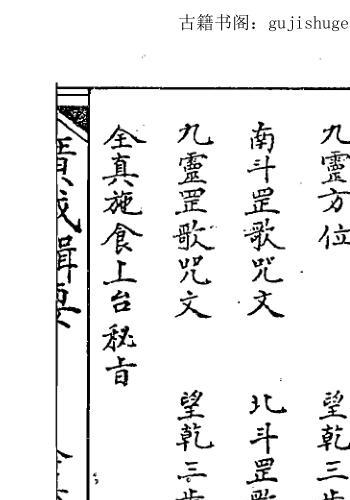 古籍书阁：gujishuge
九靈方位 望乾三步
南斗罡歌咒文 北斗罡歌
九靈罡歌咒文 望乾三步
全真施食上台秘旨
廣成輯要